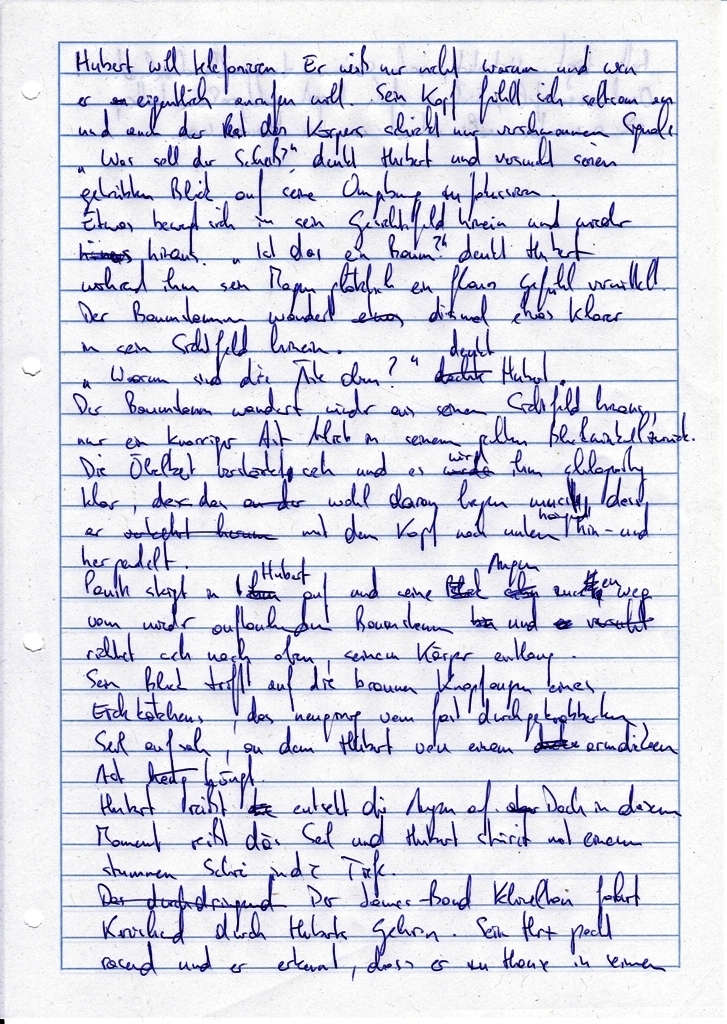 Hubert will telefonieren. Er weiß nur nicht warum und wen
er eigentlich anrufen will. Sein Kopf fühlt sich seltsam an
und auch der Rest des Körpers schickt nur verschwommen Signale.
"Was soll der Scheiß?" denkt Hubert und versucht seinen
getrübten Blick auf seine Umgebung zu fokussieren.
Etwas bewegt sich in sein Gesichtsfeld hinein und wieder
hinaus. "Ist das ein Baum?" denkt Hubert
während ihm sein Magen plötzlich ein flaues Gefühl vermittelt.
Der Baumstamm wandert diesmal etwas klarer
in sein Sichtfeld hinein.
"Warum sind die Äste oben?" denkt Hubert.
Der Baumstamm wandert wieder aus seinem Sichtfeld hinaus,
nur ein knorriger Ast blieb in seinem Blickwinkel zurück.
Die Übelkeit verstärkt sich und es wird ihm schlagartig
klar, das wohl daran liegen muss, dass
er mit dem Kopf nach unten hängend hin- und
herpendelt.
Panik steigt in Hubert auf und seine Augen zucken weg
vom wieder auftauchenden Baumstamm und
richtet sich nach oben, seinem Körper entlang.
Sein Blick trifft auf die braunen Knopfaugen eines
Eichkätzchens, das neugierig vom fast durchgeknabberten
Seil aufsah, an dem Hubert von einem
Ast hängt.
Hubert reißt entsetzt die Augen auf. Doch in diesem
Moment reißt das Seil und Hubert stürzt mit einem
stummen Schrei in die Tiefe.
Der James-Bond Klingelton fährt
kreischend durch Huberts Gehirn. Sein Herz pocht
rasend und er erkennt, dass er zu Hause in seinem